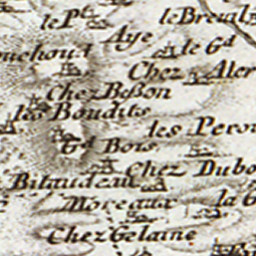 le Pt.
le Breuil
Aye
le Gd
Chez Aler
Chez Boßon
les Boudits
les Perou
Gd Bois
Chez Dubo
Bitaudeau
Moreaux
la G
Chez Gelaine